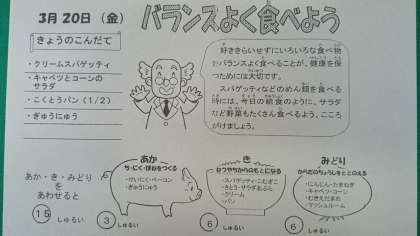 3月20日（金）
バランスよく食べよう
きょうのこんだて
・クリームスパゲッティ
・キャベツとコーンの
サラダ
・こくとうパン（1/2）
・ぎゅうにゅう
好ききらいせずにいろいろな食べ物
をバランスよく食べることが、健康を保
つためには大切です。
スパゲッティなどのめん類を食べる
時には、今日の給食のように、サラダ
など野菜もたくさん食べるよう、こころ
がけましょう。
あか・き・みどり
を
あわせると
15 しゅるい
あか
ち・にく・ほねをつくる
・けいにく・ベーコン
・ぎゅうにゅう
3 しゅるい
き
ねつやちからのもとになる
・スパゲッティ・こむぎこ
・さとう・サラダあぶら
・クリーム
・パン
6 しゅるい
みどり
からだのちょうしをととのえる
・にんじん・たまねぎ
・キャベツ・コーン
・むきえだまめ
・マッシュルーム
6 しゅるい